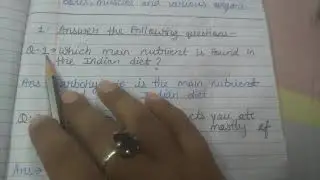 bones, muscles and various organs
1. Answer the following questions-
Q-1 Which main nutrient is found in
the Indian diet?
Ans is the main nutrient
Indian diet
Q- you ate
mostly of
Ans